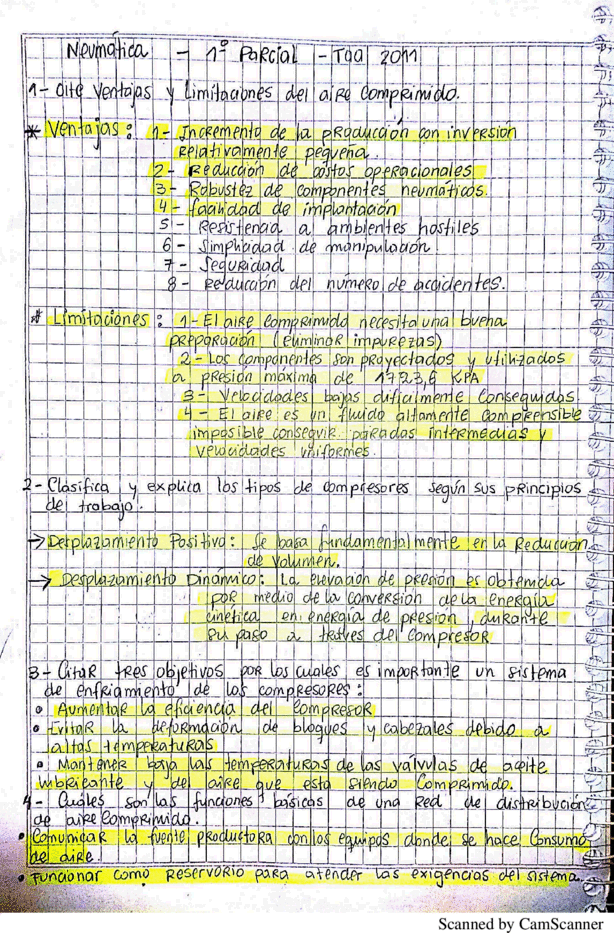 Neumática - 1º Parcial - TQQ 2011
1- Cite Ventajas y Limitaciones del aire Comprimido.
* Ventajas: 1- Incremento de la producción con inversión
relativamente pequeña.
2- Reducción de costos operacionales
3- Robustez de componentes neumáticos.
4- facilidad de implantación
5- Resistencia a ambientes hostiles
6- Simplicidad de manipulación
7- Seguridad
8- Reducción del número de accidentes.
* Limitaciones: 1- El aire Comprimido necesita una buena
preparación (eliminar impurezas)
2- Los componentes son proyectados y utilizados
a presión máxima de 1723,6 KPA
3- Velocidades bajas dificilmente Conseguidas
4- El aire es un fluido altamente Comprensible
imposible conseguir paradas intermedias y
velocidades uniformes.
2- Clasifica y explica los tipos de compresores según sus principios
del trabajo.
→ Desplazamiento Positivo: Se basa fundamentalmente en la Reducción
de Volumen.
→ Desplazamiento Dinámico: La elevación de presión es obtenida
por medio de la conversión de la energía
cinética en energía de presión, durante
su paso a través del compresor
3- Citar tres objetivos por los cuales es importante un sistema
de enfriamiento de los compresores:
• Aumentar la eficiencia del Compresor
• Evitar la deformación de bloques y cabezales debido a
altas temperaturas
• Mantener baja las temperaturas de las válvulas de aceite
lubricante y del aire que está siendo Comprimido.
4- Cuáles son las funciones básicas de una Red de distribución
de aire Comprimido.
• Comunicar la fuente productora con los equipos donde se hace Consumo
del aire.
• Funcionar como Reservorio para atender las exigencias del sistema.
Scanned by CamScanner